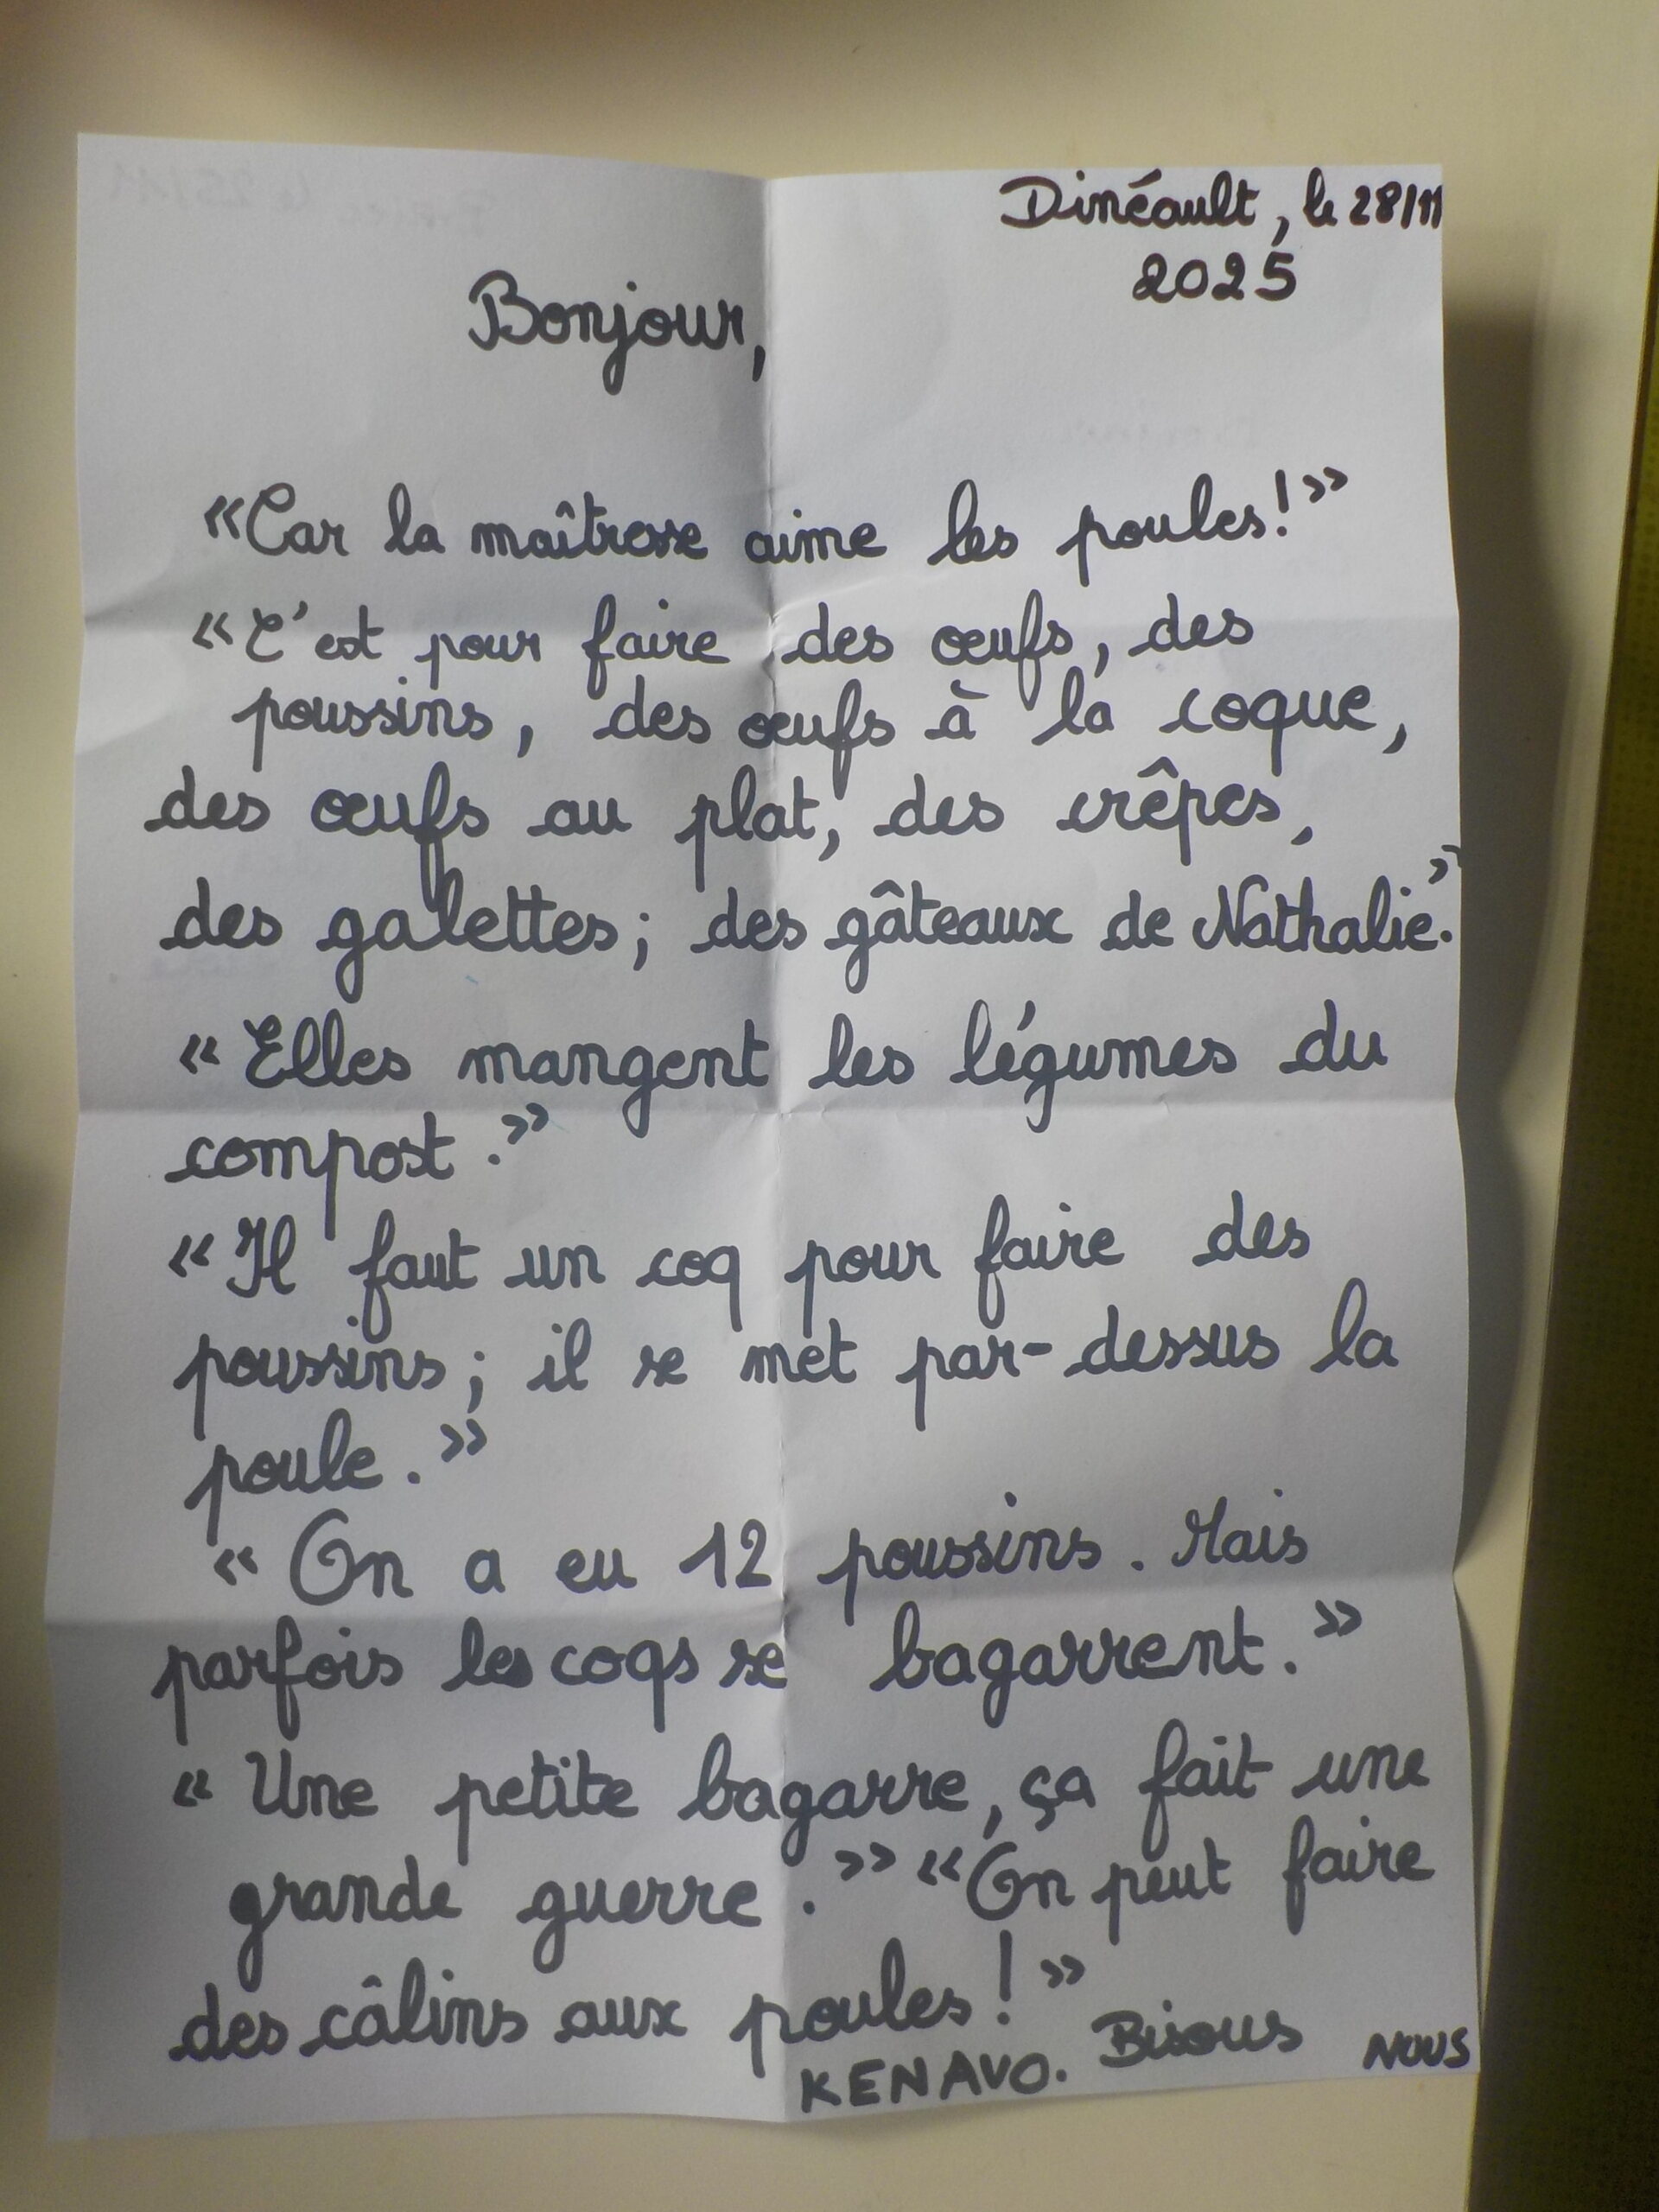 Dinéault, le 28/11
2025
Bonjour,
«Car la maîtresse aime les poules!»
«C'est pour faire des œufs, des
poussins, des œufs à la coque,
des œufs au plat, des crêpes,
des galettes; des gâteaux de Nathalie.»
«Elles mangent les légumes du
compost.»
«Il faut un coq pour faire des
poussins; il se met par-dessus la
poule.»
«On a eu 12 poussins. Mais
parfois les coqs se bagarrent.»
«Une petite bagarre, ça fait une
grande guerre.» «On peut faire
des câlins aux poules!»
KENAVO. Bisous NOUS